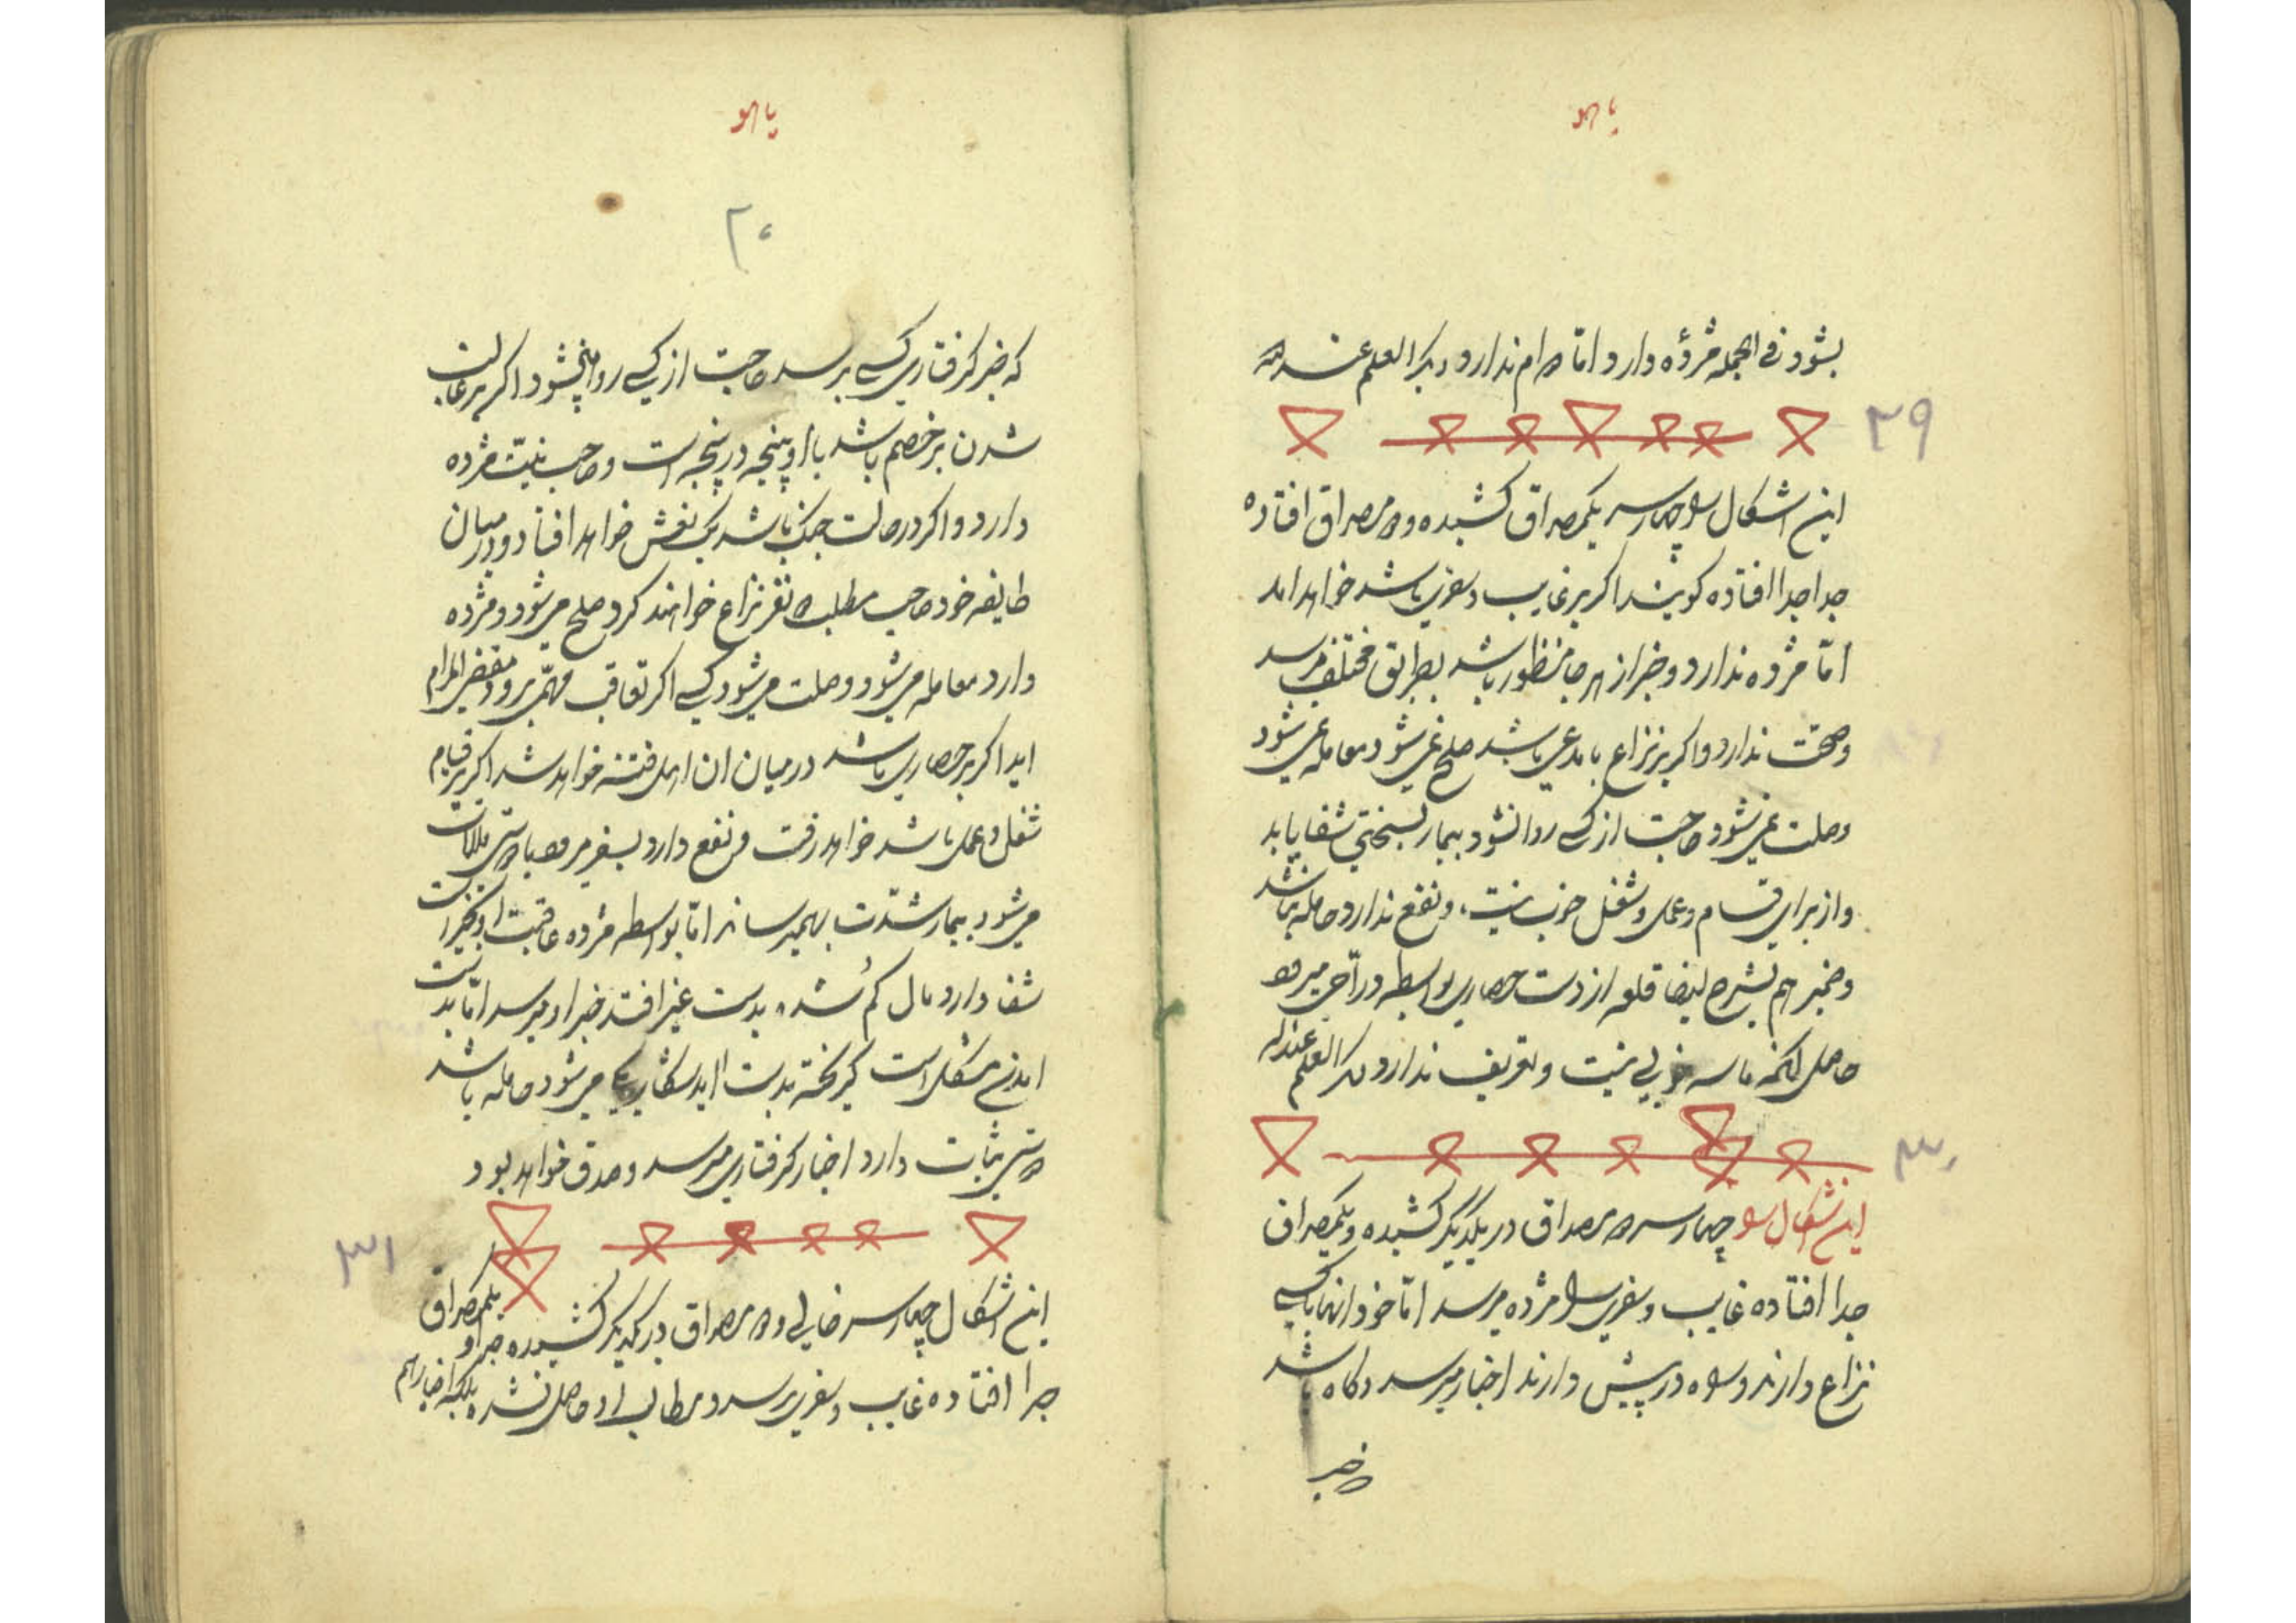 یا هو
بشود فی الجمله مژده دارد اما دوام ندارد دیگر العلم عند الله
۲۹
این اشکال را چهار سر یکمصراق کشیده و دو مصراق افتاده
جدا جدا افتاده گویند اکر بر غایب و سفری باشد خواهد امد
اما مژده ندارد و خبر از هر جا منظور باشد بطرایق مختلف میرسد
وصحّت ندارد و اکر بر نزاع با مدعی باشد صلح نمی شود معامله نمی شود
وصلت نمی شود حاجت از کسی روا نشود بیمار بسختی شفا یابد
و از برای قسام و عمل و شغل خوب نیست و نفع ندارد حامله نباشد
و ضمیر هم بشرح ایضا قلعه از دست حصاری بواسطه درآخر میرود
حاصل انکه ما سه خوبی نیست و تعریف ندارد دیگر العلم عند الله
۳۰
این اشکال را چهار سر دو مصراق در یکدیگر کشیده و یکمصراق
جدا افتاده غایب و سفری را مژده میرسد اما خود انها با کسی
نزاع دارند و راه در پیش دارند اخبار میرسد و کاه باشد
یا هو
۳۰
که خبر کرفتاری کسی برسد حاجت از کسی روا نمیشود اکر بر غالب
شدن بر خصم باشد با او پنجه در پنجه است و صاحب نیت مژده
دارد و اکر در حالت جنک باشد یک نعش خواهد افتاد و در میان
طایفه خود صاحب مطلب دو نفر نزاع خواهند کرد و صلح می شود و مژده
دارد معامله می شود وصلت می شود کسی اکر تعاقب مهمّی برود مقضی المرام
اید اکر بر حصاری باشد در میان ان اهل فتنه خواهد شد اکر بر قیام
شغل و عمل باشد خواهد رفت و نفع دارد بسفر میرود با دوستی ملاقات
می شود بیمار شدّت بهم میرساند اما بواسطه مژده عاقبت او بخیر است
شفا دارد مال کم شده بدست غیر افتد خبر او میرسد امّا بدست
امدن مشکل است کریخته بدست اید شکار می شود حامله باشد
دوستی ثبات دارد اخبار کرفتاری میرسد و صدق خواهد بود
۳۱
این اشکال چهار سر خالی و دو مصراق در یکدیگر کشیده و یکمصراق
جدا افتاده غایب و سفری برسد و مطالب او حاصل نشده بلکه اخبار هم